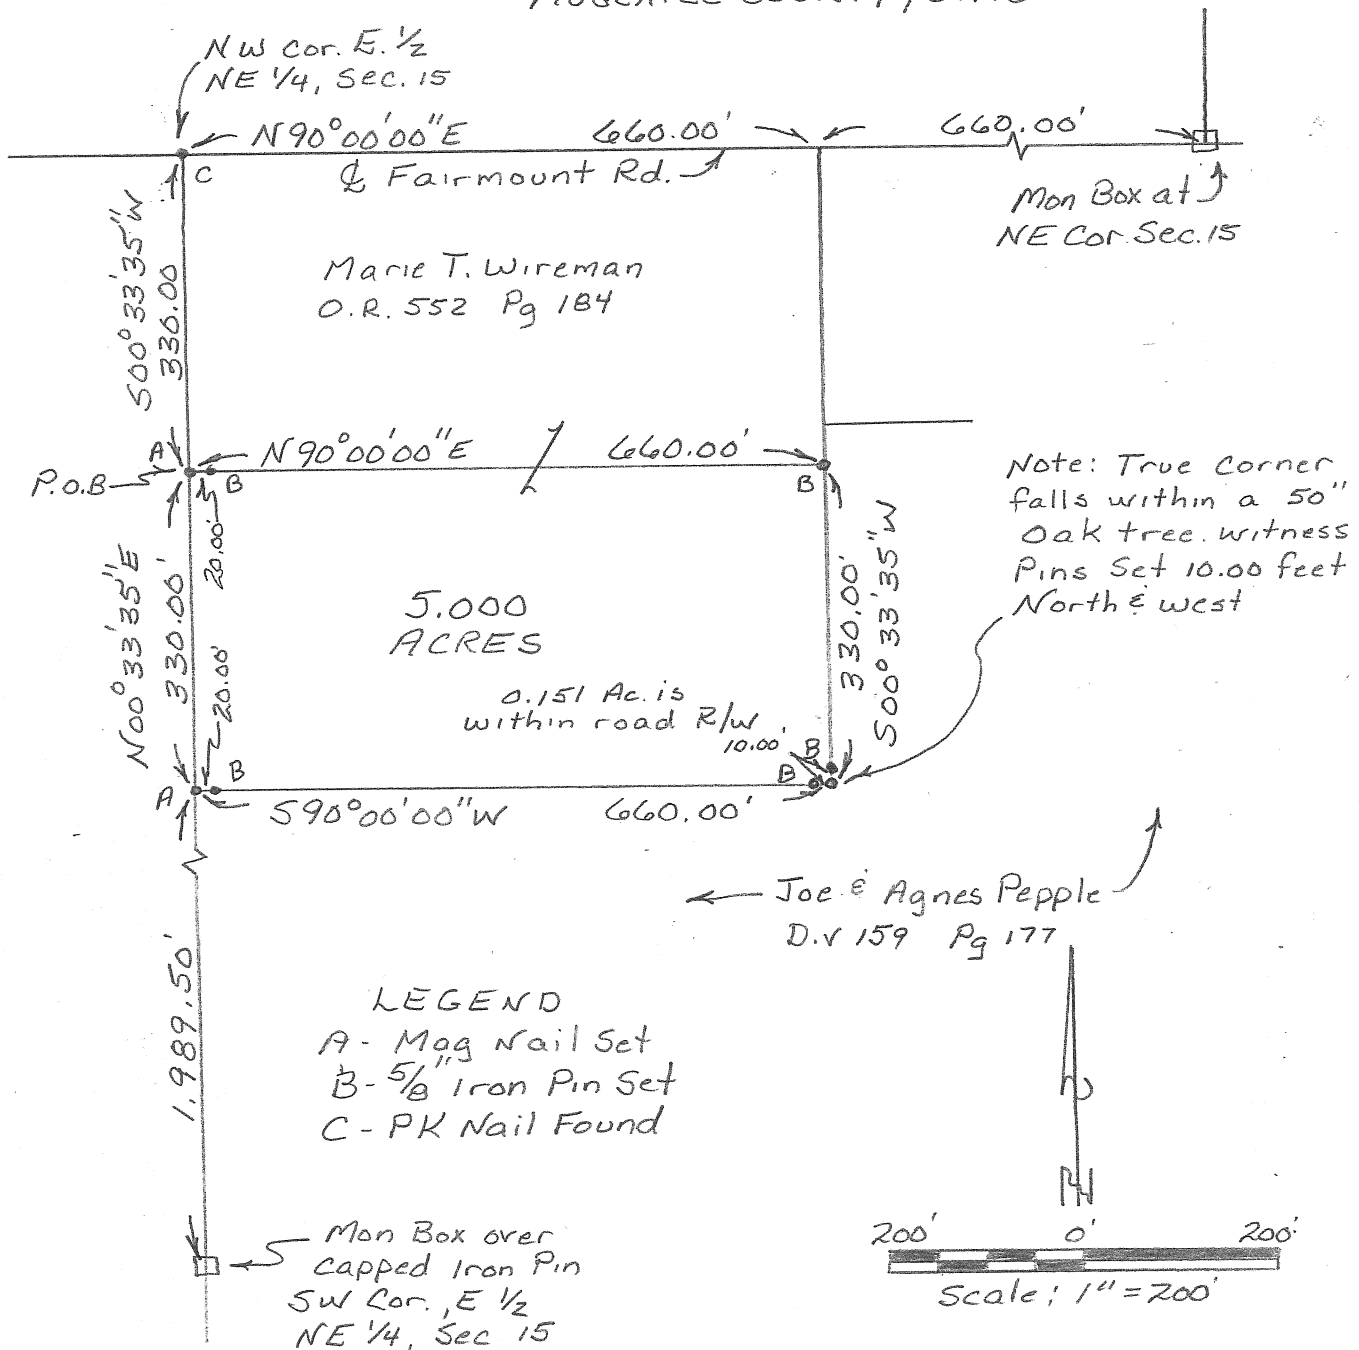 NW Cor. E. 1/2
NE 1/4, Sec. 15
N90°00'00"E 660.00' 660.00'
C
℄ Fairmount Rd.
Mon Box at
NE Cor. Sec. 15
S00°33'35"W
330.00
Marie T. Wireman
O.R. 552 Pg 184
A
N90°00'00"E 660.00'
P.O.B
B
B
Note: True Corner
falls within a 50"
Oak tree. witness
Pins Set 10.00 feet
North & west
N00°33'35"E
330.00'
20.00'
20.00'
5.000
ACRES
330.00'
S00°33'35"W
0.151 Ac. is
within road R/W
10.00'
B
B
A
B
S90°00'00"W 660.00'
Joe & Agnes Pepple
D.V 159 Pg 177
1,989.50'
LEGEND
A - Mag Nail Set
B - 5/8" Iron Pin Set
C - PK Nail Found
N
Mon Box over
Capped Iron Pin
SW Cor., E 1/2
NE 1/4, Sec 15
200' 0' 200'
Scale; 1" = 200'